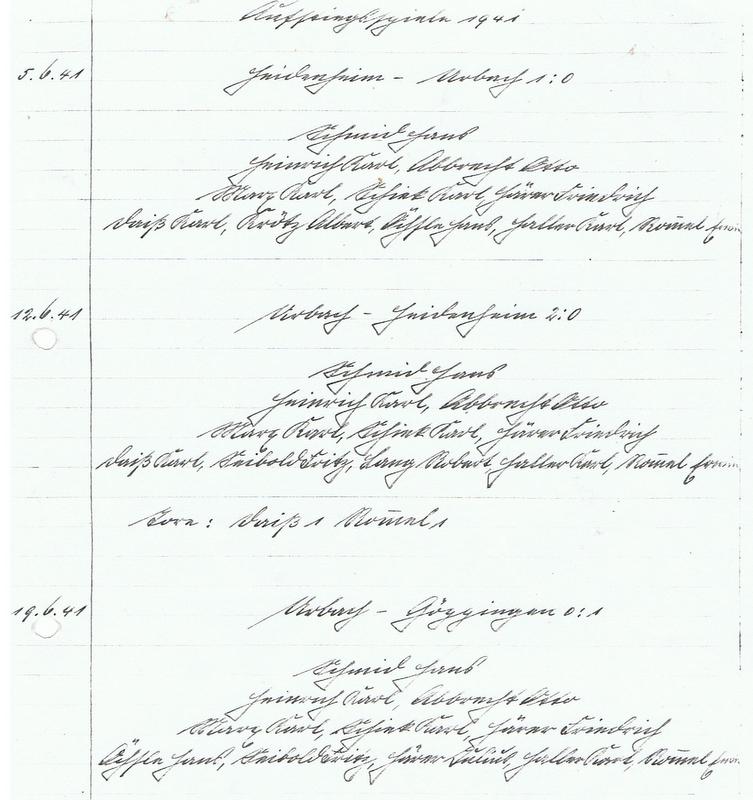 Aufstiegsspiele 1941
5.6.41 Heidenheim – Urbach 1:0
Schmid Hans
Heinrich Karl, Abbrecht Otto
Marx Karl, Schiek Karl, Härer Friedrich
Daiß Karl, Krötz Albert, Öchsle Hans, Haller Karl, Rom̄el Erwin
12.6.41 Urbach – Heidenheim 2:0
Schmid Hans
Heinrich Karl, Abbrecht Otto
Marx Karl, Schiek Karl, Härer Friedrich
Daiß Karl, Seibold Fritz, Lang Robert, Haller Karl, Rom̄el Erwin
Tore: Daiß 1 Rom̄el 1
19.6.41 Urbach – Göppingen 0:1
Schmid Hans
Heinrich Karl, Abbrecht Otto
Marx Karl, Schiek Karl, Härer Friedrich
Öchsle Hans, Seibold Fritz, Härer Julius, Haller Karl, Rom̄el Erwin